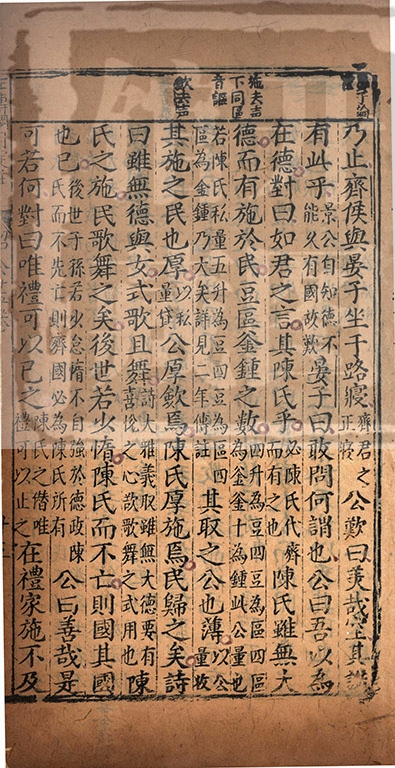 施去声
下同區
音謳
歛去声
乃止齊侯與晏子坐于路寢齊君之正寢公歎曰美哉室其誰
有此乎景公自知德不能久有國故歎晏子曰敢問何謂也公曰吾以為
在德對曰如君之言其陳氏乎必陳氏代齊而有之也陳氏雖無大
德而有施於民豆區釜鍾之數四升為豆四豆為區四區為釜釜十為鍾此公量也
若陳氏私量五升為豆四豆為區四區為金鍾乃大矣詳見二年傳註其取之公也薄以公量收
其施之民也厚以私量貸公厚歛焉陳氏厚施焉民歸之矣詩
曰雖無德與女式歌且舞詩大雅義取雖無大德要有喜悅之心欲歌舞之式用也陳
氏之施民歌舞之矣後世若少惰陳氏而不亡則國其國
也已後世子孫若少怠惰不自強於德政陳氏而不先亡則齊國必為陳氏所有公曰善哉是
可若何對曰唯禮可以已之陳氏之僭唯禮可以止之在禮家施不及